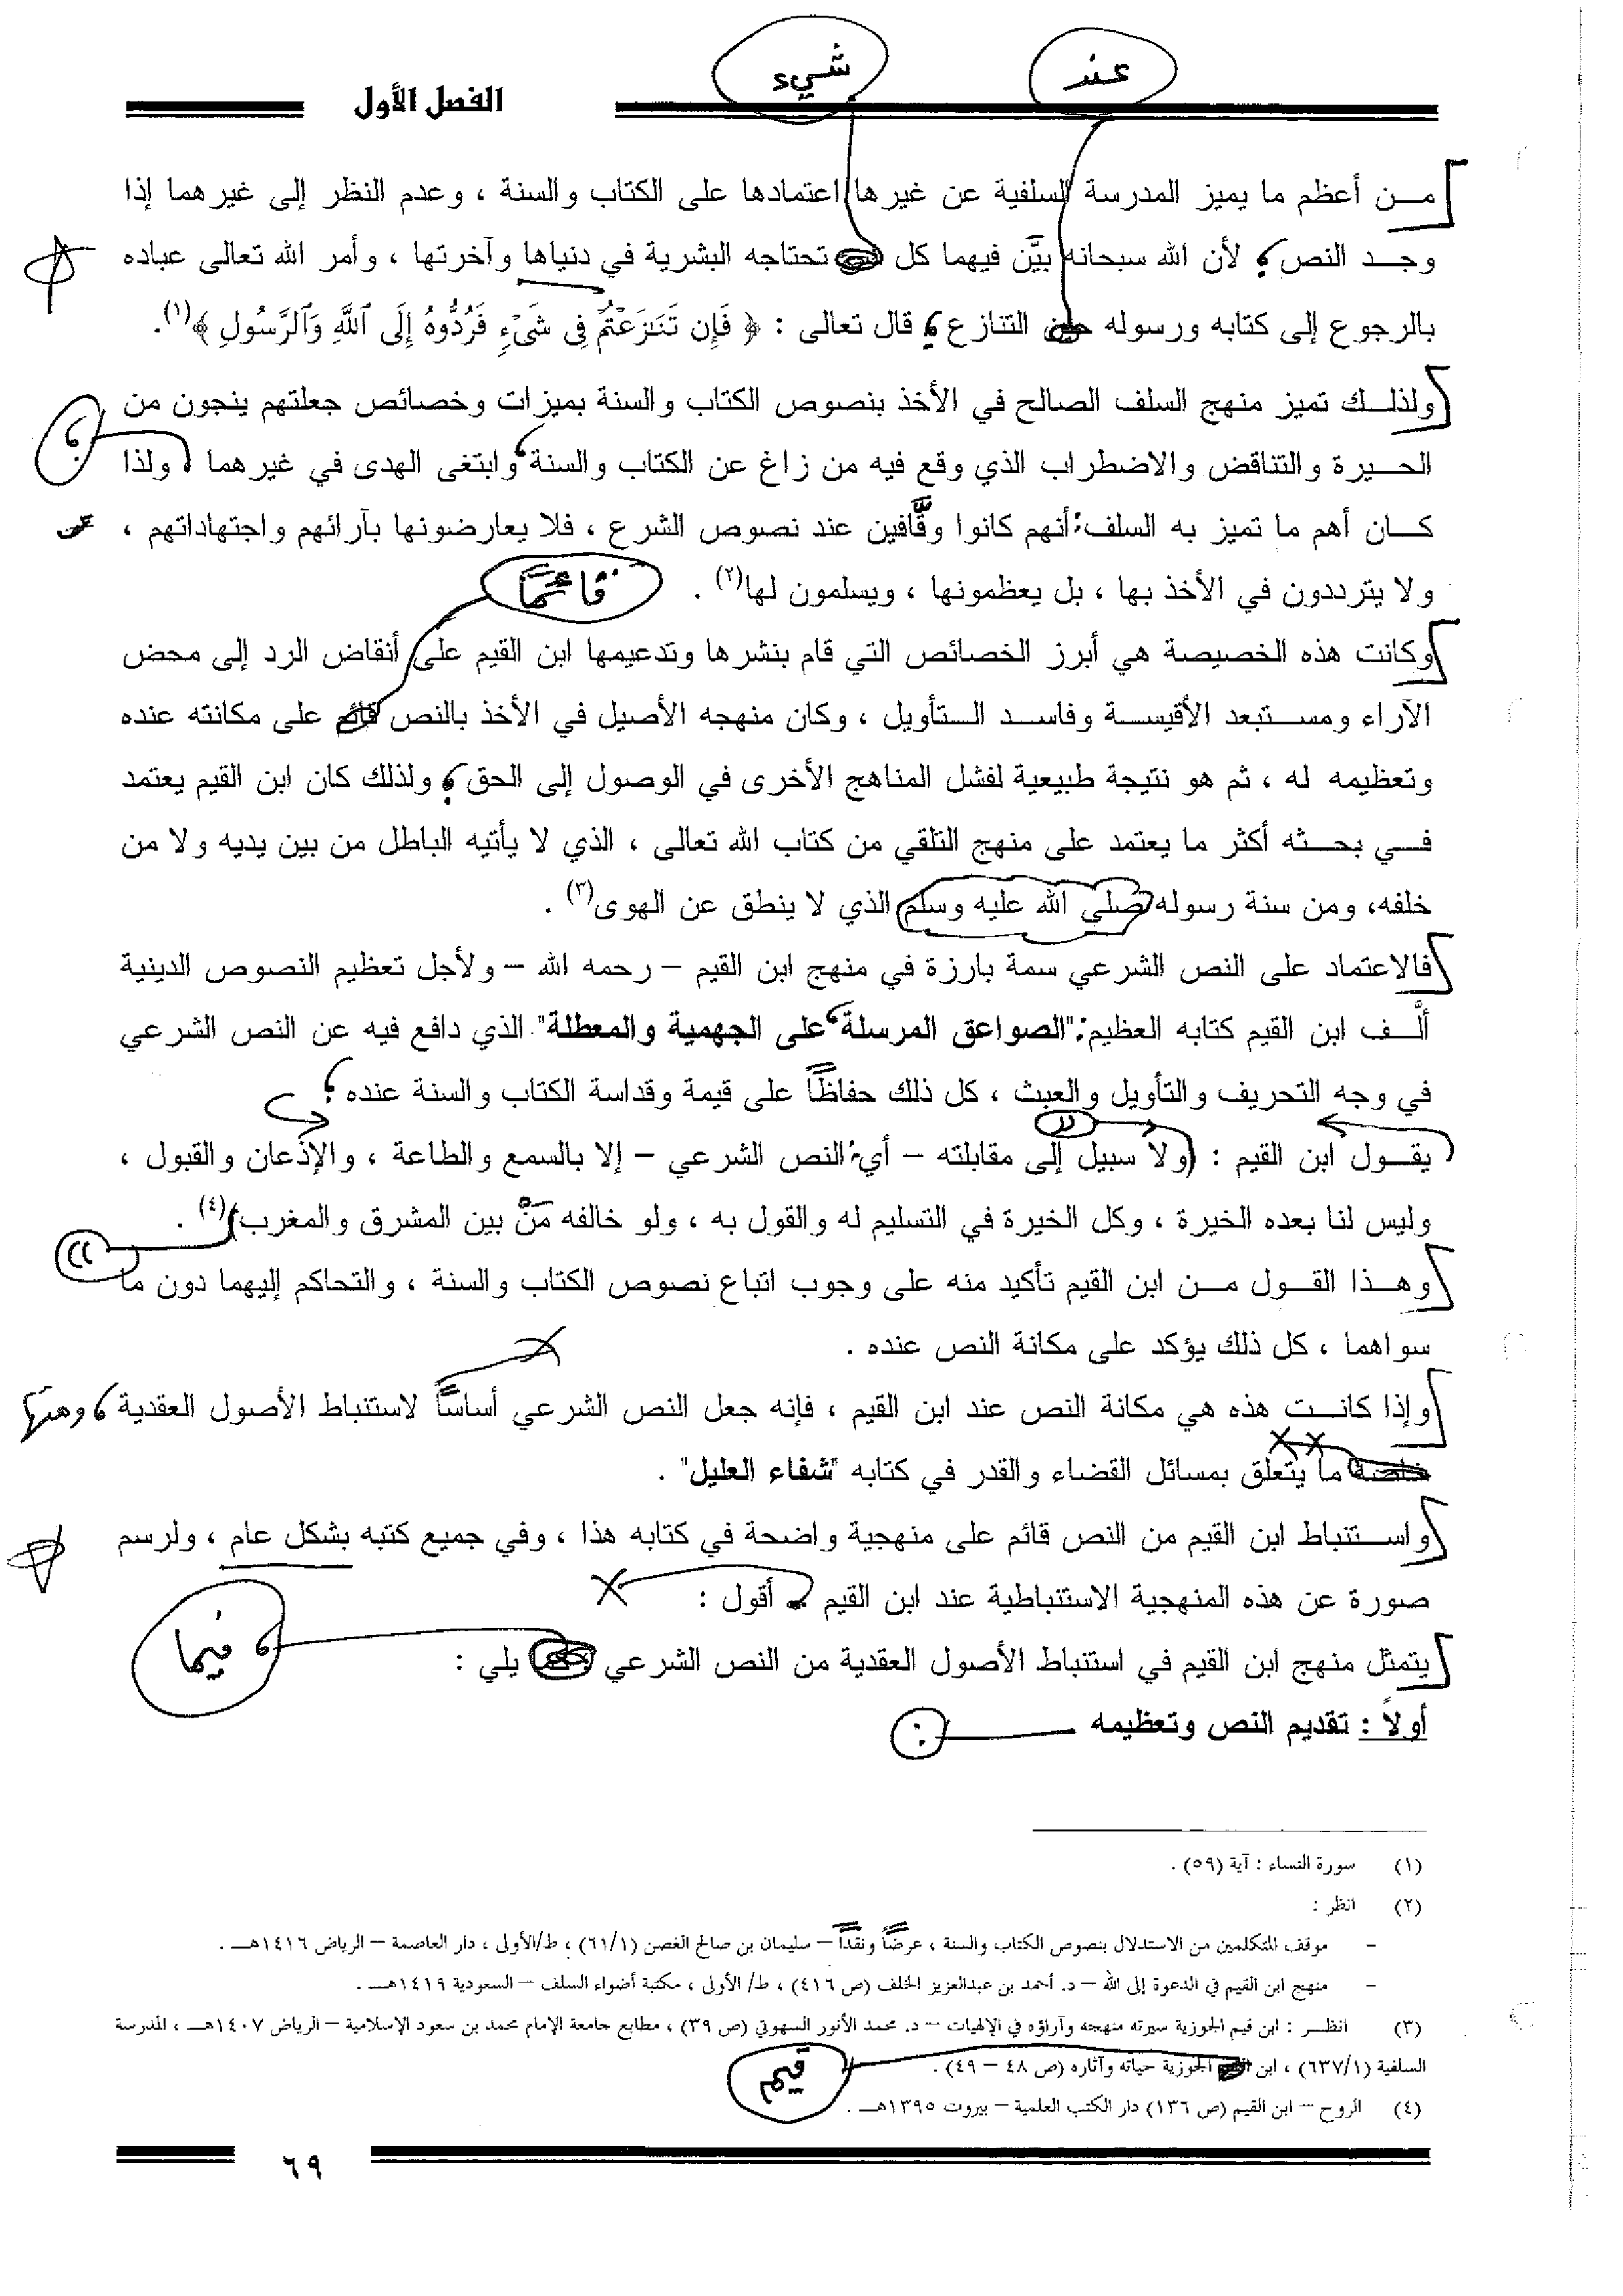 عند شيء
الفصل الأول
من أعظم ما يميز المدرسة السلفية عن غيرها اعتمادها على الكتاب والسنة ، وعدم النظر إلى غيرهما إذا
وجد النص ؛ لأن الله سبحانه بيَّن فيهما كل تحتاجه البشرية في دنياها وآخرتها ، وأمر الله تعالى عباده
بالرجوع إلى كتابه ورسوله حين التنازع ؛ قال تعالى : ﴿ فَإِن تَنَٰزَعۡتُمۡ فِي شَيۡءٖ فَرُدُّوهُ إِلَى ٱللَّهِ وَٱلرَّسُولِ ﴾(١).
ولذلك تميز منهج السلف الصالح في الأخذ بنصوص الكتاب والسنة بميزات وخصائص جعلتهم ينجون من
الحيرة والتناقض والاضطراب الذي وقع فيه من زاغ عن الكتاب والسنة وابتغى الهدى في غيرهما ، ولذا
؛
كان أهم ما تميز به السلف: أنهم كانوا وقَّافين عند نصوص الشرع ، فلا يعارضونها بآرائهم واجتهاداتهم ،
ولا يترددون في الأخذ بها ، بل يعظمونها ، ويسلمون لها(٢) .
قائمًا
وكانت هذه الخصيصة هي أبرز الخصائص التي قام بنشرها وتدعيمها ابن القيم على أنقاض الرد إلى محض
الآراء ومستبعد الأقيسة وفاسد التأويل ، وكان منهجه الأصيل في الأخذ بالنص قائم على مكانته عنده
وتعظيمه له ، ثم هو نتيجة طبيعية لفشل المناهج الأخرى في الوصول إلى الحق ؛ ولذلك كان ابن القيم يعتمد
في بحثه أكثر ما يعتمد على منهج التلقي من كتاب الله تعالى ، الذي لا يأتيه الباطل من بين يديه ولا من
خلفه، ومن سنة رسوله صلى الله عليه وسلم الذي لا ينطق عن الهوى(٣) .
فالاعتماد على النص الشرعي سمة بارزة في منهج ابن القيم – رحمه الله – ولأجل تعظيم النصوص الدينية
ألَّف ابن القيم كتابه العظيم: "الصواعق المرسلة على الجهمية والمعطلة" الذي دافع فيه عن النص الشرعي
في وجه التحريف والتأويل والعبث ، كل ذلك حفاظًا على قيمة وقداسة الكتاب والسنة عنده ؛
يقول ابن القيم : (ولا سبيل إلى مقابلته – أي: النص الشرعي – إلا بالسمع والطاعة ، والإذعان والقبول ،
وليس لنا بعده الخيرة ، وكل الخيرة في التسليم له والقول به ، ولو خالفه مَنْ بين المشرق والمغرب)(٤) .
وهذا القول من ابن القيم تأكيد منه على وجوب اتباع نصوص الكتاب والسنة ، والتحاكم إليهما دون ما
سواهما ، كل ذلك يؤكد على مكانة النص عنده .
وإذا كانت هذه هي مكانة النص عند ابن القيم ، فإنه جعل النص الشرعي أساسًا لاستنباط الأصول العقدية ، ومنها
خاصة ما يتعلق بمسائل القضاء والقدر في كتابه "شفاء العليل" .
واستنباط ابن القيم من النص قائم على منهجية واضحة في كتابه هذا ، وفي جميع كتبه بشكل عام ، ولرسم
صورة عن هذه المنهجية الاستنباطية عند ابن القيم ، أقول :
فيما
يتمثل منهج ابن القيم في استنباط الأصول العقدية من النص الشرعي يلي :
أولاً : تقديم النص وتعظيمه :
(١) سورة النساء : آية (٥٩) .
(٢) انظر :
– موقف المتكلمين من الاستدلال بنصوص الكتاب والسنة ، عرضًا ونقدًا – سليمان بن صالح الغصن (٦١/١) ، ط/الأولى ، دار العاصمة – الرياض ١٤١٦هـ .
– منهج ابن القيم في الدعوة إلى الله – د. أحمد بن عبدالعزيز الخلف (ص ٤١٦) ، ط/ الأولى ، مكتبة أضواء السلف – السعودية ١٤١٩هـ .
(٣) انظر : ابن قيم الجوزية سيرته منهجه وآراؤه في الإلهيات – د. محمد الأنور السهوتي (ص ٣٩) ، مطابع جامعة الإمام محمد بن سعود الإسلامية – الرياض ١٤٠٧هـ ، المدرسة
السلفية (٦٣٧/١) ، ابن الجوزية حياته وآثاره (ص ٤٨ – ٤٩) .
قيم
(٤) الروح – ابن القيم (ص ١٣٦) دار الكتب العلمية – بيروت ١٣٩٥هـ .
٦٩